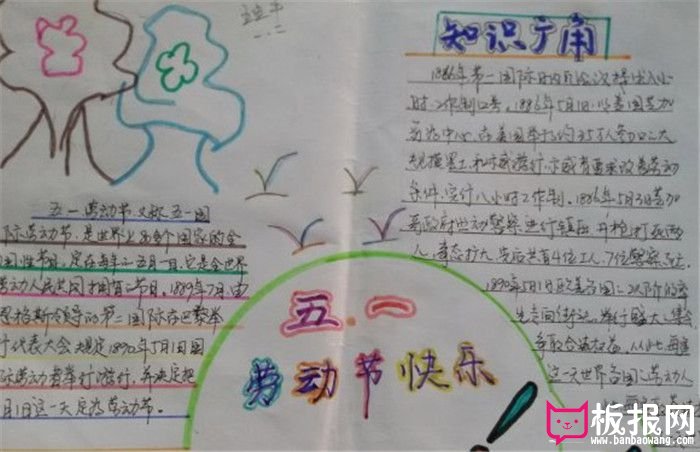 知识广角
五一劳动节,又称五一国
际劳动节,是世界上80多个国家的全
国性节日,定在每年的五月一日,它是全世界
劳动人民共同拥有的节日。1889年7月,由
恩格斯领导的第二国际在巴黎举
行代表大会规定1890年5月1日国
际劳动者举行游行,并决定把
月1日这一天定为劳动节。
1866年第一国际日内瓦会议提出八小
时工作制口号。1886年5月1日,以美国芝加
哥为中心,在美国举行约35万人参加的大
规模罢工和示威游行,示威者要求改善劳动
条件,实行八小时工作制。1886年5月3日芝加
哥政府出动警察进行镇压,开枪打死两
人,事态扩大,先后共有4位工人,7位警察死亡。
1890年5月1日欧美各国
走向街头,举行盛大
争取合法权益。从此每逢
这一天世界各国劳动人
五.一
劳动节快乐
板报网
www.banbaowang.com